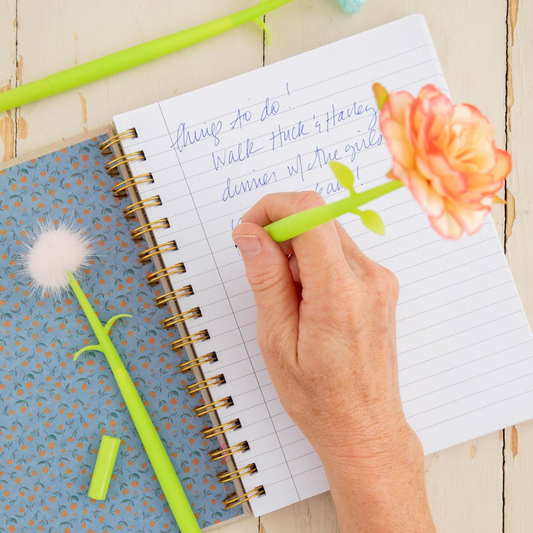 things to do!
Walk Huck & Harley
dinner w/ the girls